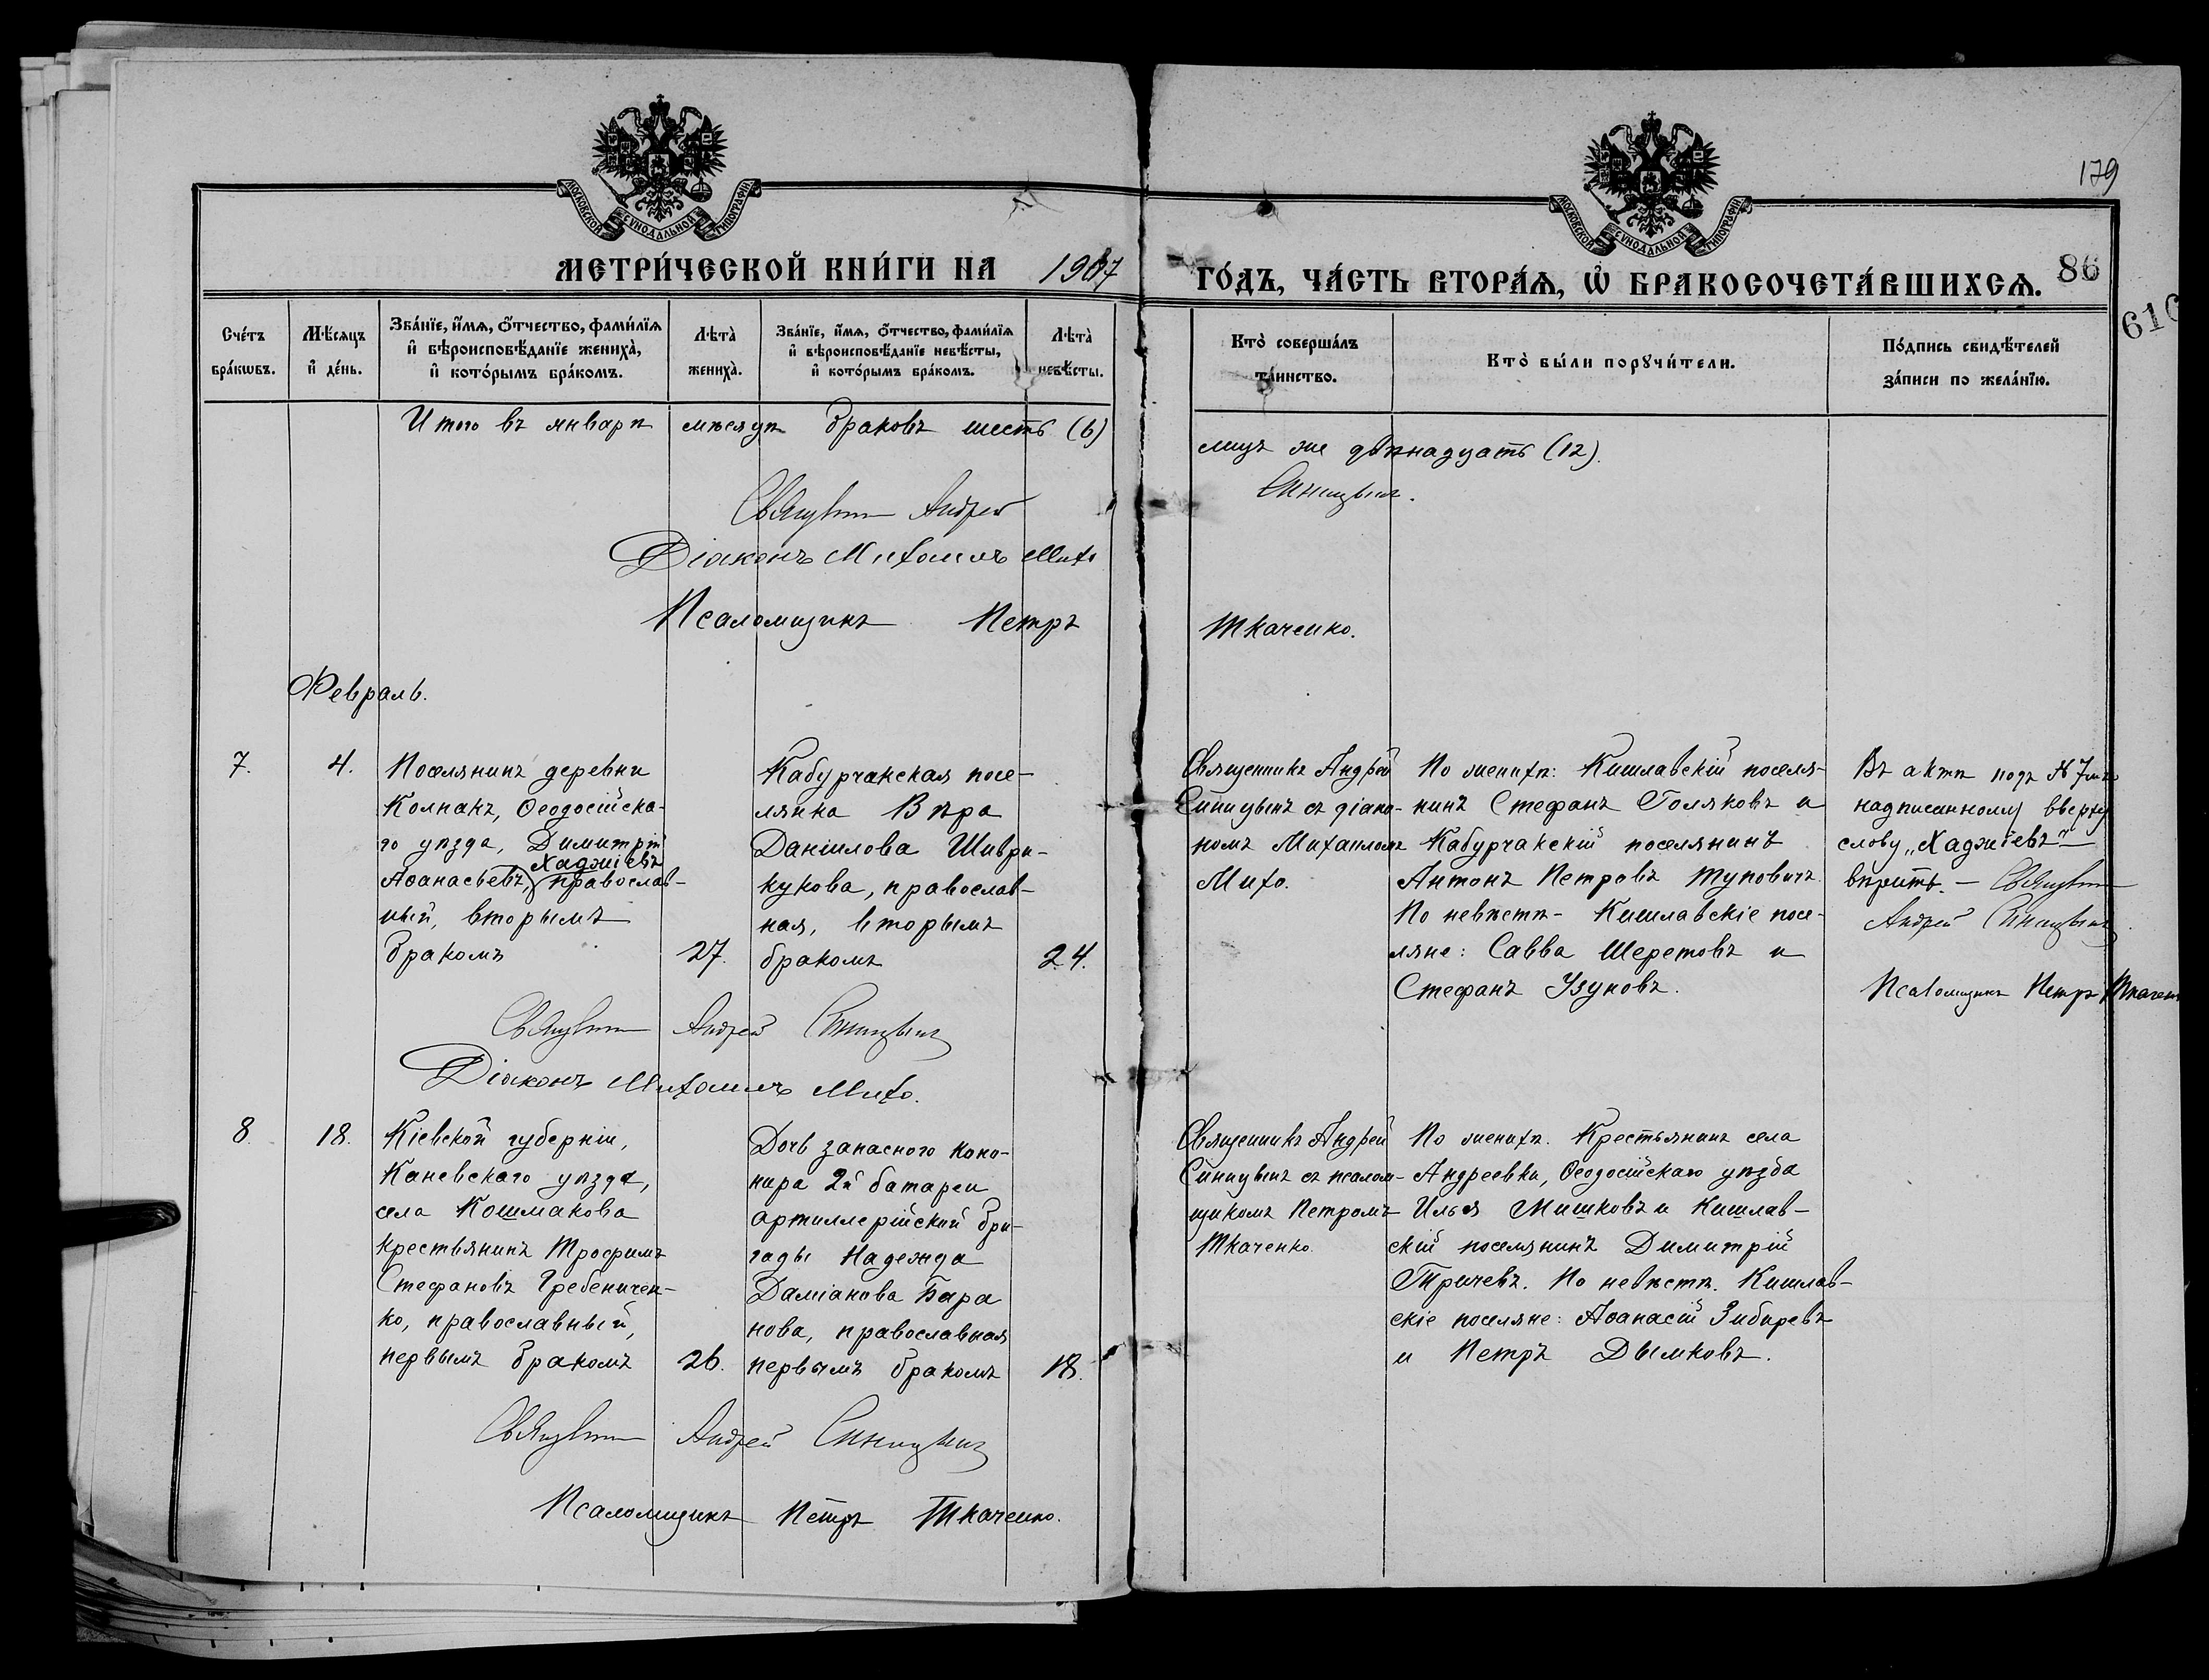 МОСКОВСКОЙ СѴНОДАЛЬНОЙ ТИПОГРАФІИ
МОСКОВСКОЙ СѴНОДАЛЬНОЙ ТИПОГРАФІИ
179
МЕТРИ́ЧЕСКОЙ КНИ́ГИ НА 1907 ГО́ДЪ, ЧА́СТЬ ВТОРА́Ѧ, Ѡ҆ БРАКОСОЧЕТА́ВШИХСѦ.
86
616
Сче́тъ бра́кѡвъ.
Мѣ́сяцъ и҆ де́нь.
Зва́нїе, и҆́мѧ, ѻ҆́тчество, фами́лїѧ и҆ вѣроисповѣ́данїе жениха̀, и҆ кото́рымъ бра́комъ.
Лѣта̀ жениха̀.
Зва́нїе, и҆́мѧ, ѻ҆́тчество, фами́лїѧ и҆ вѣроисповѣ́данїе невѣ́сты, и҆ кото́рымъ бра́комъ.
Лѣта̀ невѣ́сты.
Кто̀ соверша́лъ та́инство.
Кто̀ бы́ли порꙋчи́тели.
По́дпись свидѣ́телей за́писи по жела́нїю.
Итого въ январѣ мѣсяцѣ браковъ шесть (6)
лицъ же двѣнадцать (12).
Священникъ Андрей
Синицынъ.
Діаконъ Михаилъ Михо
Псаломщикъ Петръ
Ткаченко.
Февраль.
7.
4.
Поселянинъ деревни
Колпакъ, Ѳеодосійска-
го уѣзда, Димитрій
Хаджіевъ
Аѳанасьевъ, православ-
ный, вторымъ
бракомъ
27.
Кабурчакская посе-
лянка Вѣра
Даніилова Шиври-
кукова, православ-
ная, вторымъ
бракомъ
24.
Священникъ Андрей
Синицынъ съ діако-
номъ Михаиломъ
Михо.
По женихѣ: Кишлавскій поселя-
нинъ Стефанъ Голяковъ и
Кабурчакскій поселянинъ
Антонъ Петровъ Туповичъ.
По невѣстѣ - Кишлавскіе посе-
ляне: Савва Шеретовъ и
Стефанъ Узуновъ.
Въ актѣ подъ № 7мъ
надписанному вверху
слову „Хаджіевъ" —
вѣрить. — Священникъ
Андрей Синицынъ.
Псаломщикъ Петръ Ткаченко
Священникъ Андрей Синицынъ
Діаконъ Михаилъ Михо.
8.
18.
Кіевской губерніи,
Каневскаго уѣзда,
села Кошмакова
крестьянинъ Трофимъ
Стефановъ Гребеничен-
ко, православный,
первымъ бракомъ
26.
Дочь запасного кано-
нира 2й батареи
артиллерійской бри-
гады Надежда
Даміанова Бара
нова, православная
первымъ бракомъ
18.
Священникъ Андрей
Синицынъ съ псалом-
щикомъ Петромъ
Ткаченко.
По женихѣ. Крестьянинъ села
Андреевки, Ѳеодосійскаго уѣзда
Илья Мишковъ и Кишлав-
скій поселянинъ Димитрій
Тричевъ. По невѣстѣ. Кишлав-
скіе поселяне: Аѳанасій Зибаревъ
и Петръ Дымковъ.
Священникъ Андрей Синицынъ
Псаломщикъ Петръ Ткаченко.